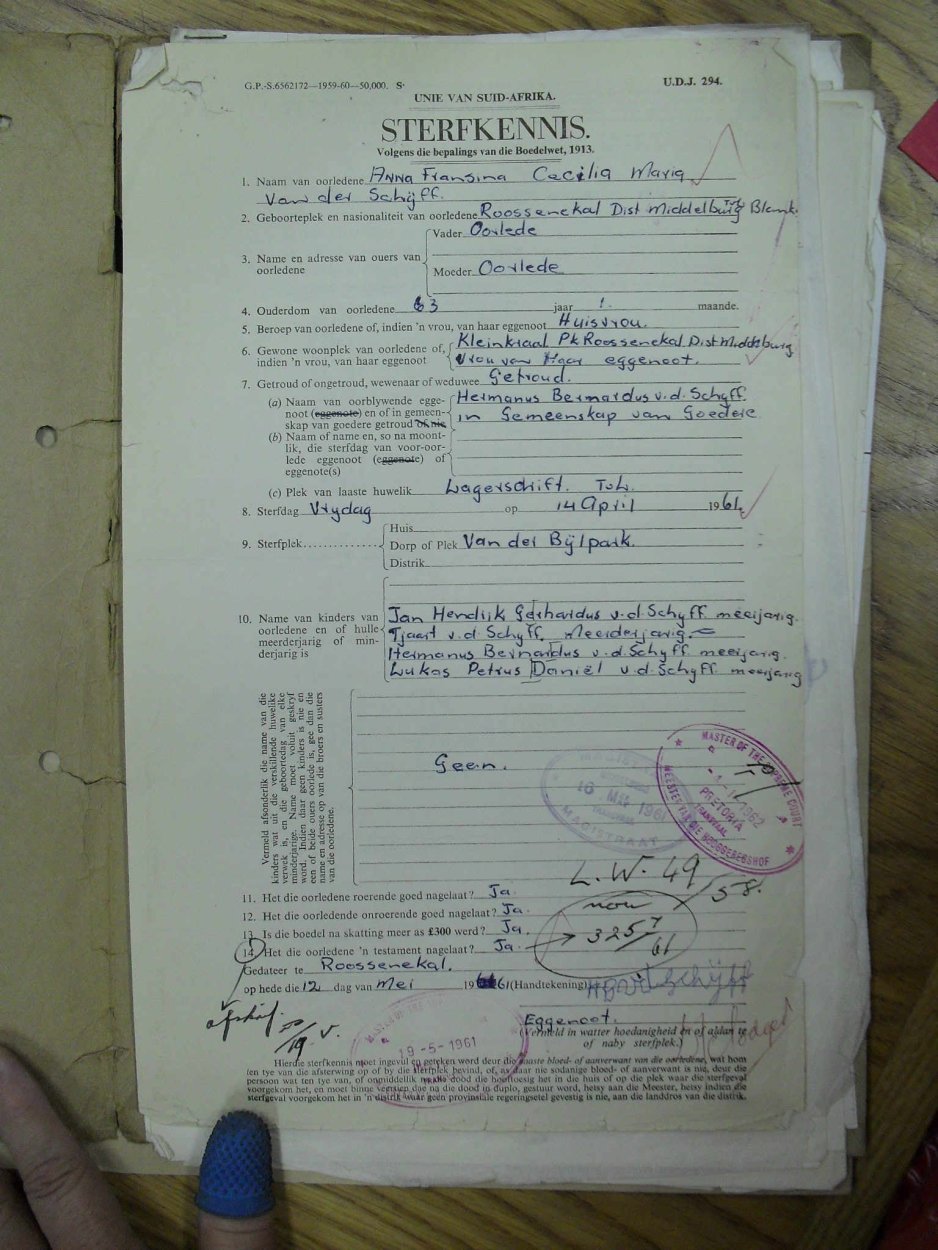 G.P.-S.6562172—1959-60—50,000. S
U.D.J. 294.
UNIE VAN SUID-AFRIKA.
STERFKENNIS.
Volgens die bepalings van die Boedelwet, 1913.
1. Naam van oorledene Anna Fransina Cecilia Maria
Van der Schÿff.
2. Geboorteplek en nasionaliteit van oorledene Roossenekal Dist Middelburg Blank.
3. Name en adresse van ouers van oorledene
Vader Oorlede
Moeder Oorlede
4. Ouderdom van oorledene 63 jaar 1 maande.
5. Beroep van oorledene of, indien 'n vrou, van haar eggenoot Huisvrou.
6. Gewone woonplek van oorledene of, indien 'n vrou, van haar eggenoot
Kleinkraal Pk Roossenekal Dist Middelburg
Vrou van Haar eggenoot.
7. Getroud of ongetroud, wewenaar of weduwee Getroud.
(a) Naam van oorblywende eggenoot (eggenote) en of in gemeenskap van goedere getroud of nie
Hermanus Bernardus v.d. Schyff
in Gemeenskap van Goedere
(b) Naam of name en, so na moontlik, die sterfdag van vooroorlede eggenoot (eggenote) of eggenote(s)
(c) Plek van laaste huwelik Lagersdrift. Tvl.
8. Sterfdag Vrydag op 14 April 1961
9. Sterfplek
Huis
Dorp of Plek Van der Bÿlpark.
Distrik
10. Name van kinders van oorledene en of hulle meerderjarig of minderjarig is
Jan Hendrik Gerhardus v.d Schyff meerjarig.
Tjaart v.d. Schyff. Meerderjarig.
Hermanus Bernardus v.d. Schyff meerjarig.
Lukas Petrus Daniël v.d. Schyff meerjarig
Vermeld afsonderlik die name van die kinders wat uit die verskillende huwelike verwek is, en die geboortedag van elke minderjarige. Name moet voluit geskryf word. Indien daar geen kinders is nie en een of beide ouers oorlede is, gee dan die name en adresse op van die broers en susters van die oorledene.
Geen.
10 MEI 1961
MAGISTRAAT
MASTER OF THE SUPREME COURT
1962
PRETORIA
TRANSVAAL
MEESTER VAN DIE HOOGGEREGSHOF
L.W. 49/58.
11. Het die oorledene roerende goed nagelaat? Ja.
12. Het die oorledende onroerende goed nagelaat? Ja.
now
13. Is die boedel na skatting meer as £300 werd? Ja.
3257/61
14. Het die oorledene 'n testament nagelaat? Ja.
Gedateer te Roossenekal.
op hede die 12 dag van Mei 1961 (Handtekening)
Eggenoot.
(Vermeld in watter hoedanigheid en of aldan te of naby sterfplek.)
19-5-1961
Hierdie sterfkennis moet ingevul en geteken word deur die naaste bloed- of aanverwant van die oorledene, wat hom
ten tye van die afsterwing op of by die sterfplek bevind, of, as daar nie sodanige bloed- of aanverwant is nie, deur die
persoon wat ten tye van, of onmiddellik na die dood die hooftoesig het in die huis of op die plek waar die sterfgeval
voorgekom het, en moet binne veertien doe na die dood in duplo, gestuur word, hetsy aan die Meester, hetsy indien die
sterfgeval voorgekom het in 'n distrik waar geen provinsiale regeringsetel gevestig is nie, aan die landdros van die distrik.